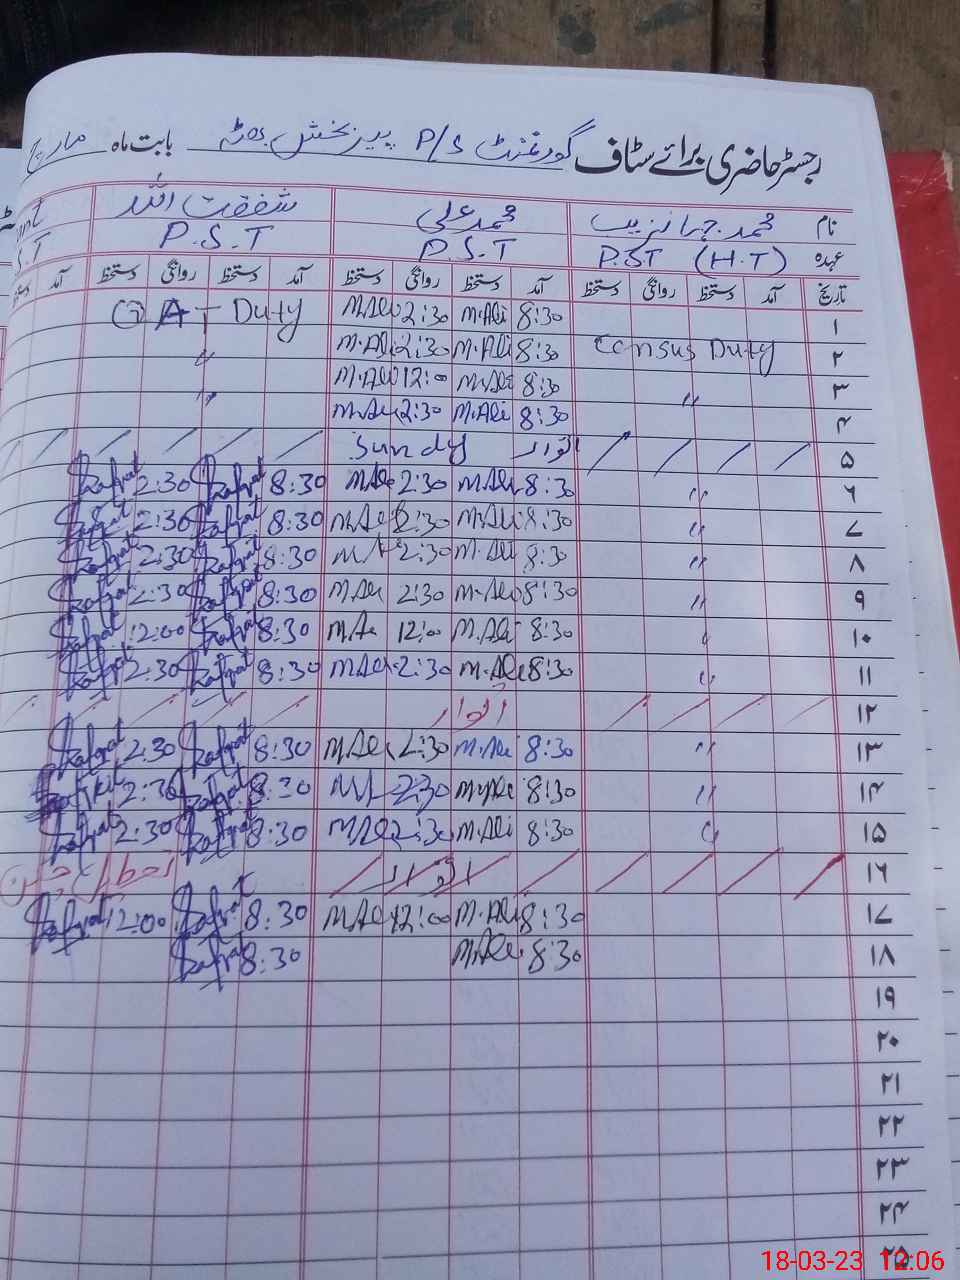 رجسٹر حاضری برائے سٹاف گورنمنٹ P/S پیر بخش بھٹہ بابت ماہ مارچ
نام محمد جہانزیب محمد علی شفقت اللہ
عہدہ P.ST (H.T) P.S.T P.S.T S.T
تاریخ آمد دستخط روانگی دستخط آمد دستخط روانگی دستخط آمد دستخط روانگی دستخط آمد دستخط
۱ 8:30 M.Ali 2:30 M.Ali G A T Duty
۲ Census Duty 8:30 M.Ali 2:30 M.Ali "
۳ " 8:30 M.Ali 12:00 M.Ali "
۴ 8:30 M.Ali 2:30 M.Ali
۵ اتوار Sundy
۶ " 8:30 M.Ali 2:30 M.Ali 8:30 Shafqat 2:30 Shafqat
۷ " 8:30 M.Ali 2:30 M.Ali 8:30 Shafqat 2:30 Shafqat
۸ " 8:30 M.Ali 2:30 8:30 Shafqat 2:30 Shafqat
۹ " 8:30 M.Ali 2:30 M.Ali 8:30 Shafqat 2:30 Shafqat
۱۰ " 8:30 M.Ali 12:00 M.Ali 8:30 Shafqat 12:00 Shafqat
۱۱ " 8:30 M.Ali 2:30 M.Ali 8:30 Shafqat 2:30 Shafqat
۱۲ اتوار
۱۳ " 8:30 M.Ali 2:30 M.Ali 8:30 Shafqat 2:30 Shafqat
۱۴ " 8:30 M.Ali 2:30 8:30 Shafqat 2:30 Shafqat
۱۵ " 8:30 M.Ali 2:30 M.Ali 8:30 Shafqat 2:30 Shafqat
۱۶ اتوار
۱۷ 8:30 M.Ali 12:00 M.Ali 8:30 Shafqat 12:00 Shafqat
۱۸ 8:30 M.Ali 8:30 Shafqat
۱۹
۲۰
۲۱
۲۲
۲۳
۲۴
۲۵
18-03-23 12:06